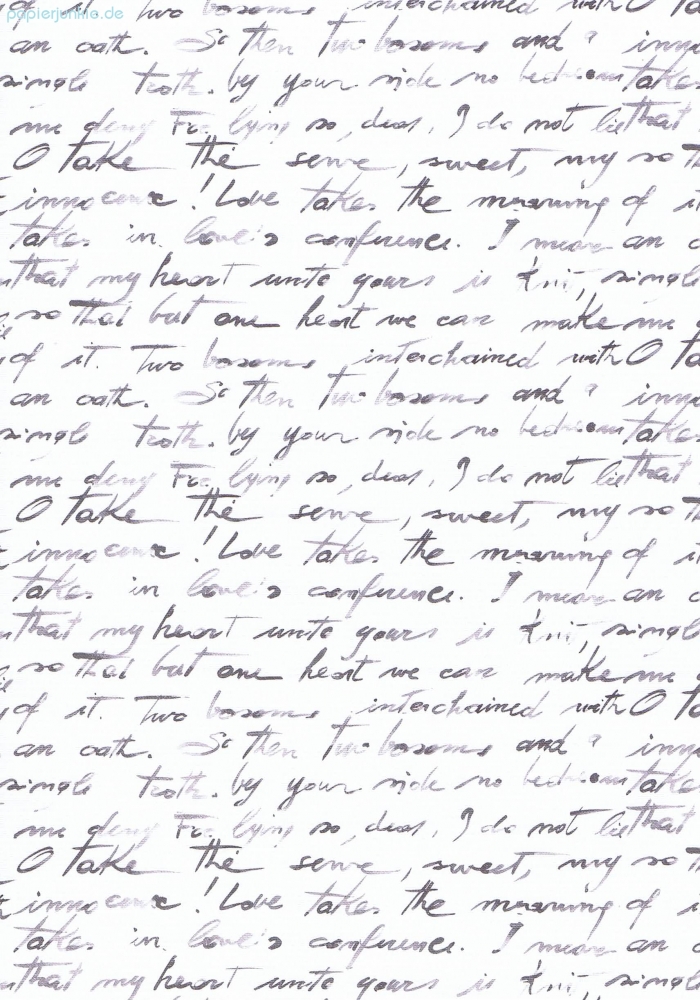 papierjunkie.de
of it. Two bosoms interchained with O ta
an oath. So then two bosoms and a inno
single troth. by your side no bedroom takes
me deny For lying so, dear, I do not lie that
O take the sense, sweet, my so T
innocence! Love takes the meaning of it
takes in love's conference. I mean an o
that my heart unto yours is knit, single
so that but one heart we can make me
of it. Two bosoms interchained with O ta
an oath. So then two bosoms and a inno
single troth. by your side no bedroom takes
me deny For lying so, dear, I do not lie that
O take the sense, sweet, my so T
innocence! Love takes the meaning of it
takes in love's conference. I mean an o
that my heart unto yours is knit, single
so that but one heart we can make me
of it. Two bosoms interchained with O ta
an oath. So then two bosoms and a inno
single troth. by your side no bedroom takes
me deny For lying so, dear, I do not lie that
O take the sense, sweet, my so T
innocence! Love takes the meaning of i
takes in love's conference. I mean an o
that my heart unto yours is knit, single